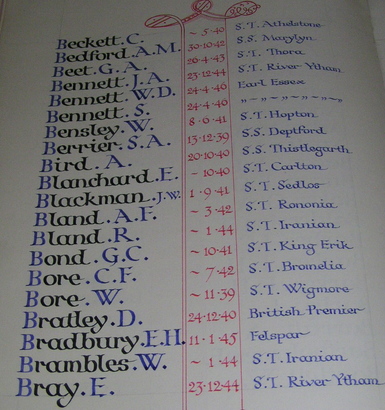 Beckett. C. ~ 5·40 S.T. Athelstone
Bedford. A.M. 30·10·42 S.S. Marylyn
Beet. G.A. 26·4·43 S.T. Thora
Bennett. J.A. 23·12·44 S.T. River Ytham
Bennett. W.D. 24·4·46 Earl Essex
Bennett. S. 24·4·46 〃~〃~〃~〃~〃
Bensley. W. 8·6·41 S.T. Hopton
Berrier. S.A. 13·12·39 S.S. Deptford
Bird. A. 20·10·40 S.S. Thistlegarth
Blanchard. E. ~ 10·40 S.T. Carlton
Blackman. J.W. 1·9·41 S.T. Sedlos
Bland. A.F. ~ 3·42 S.T. Rononia
Bland. R. ~ 1·44 S.T. Iranian
Bond. G.C. ~ 10·41 S.T. King Erik
Bore. C.F. ~ 7·42 S.T. Bromelia
Bore. W. ~ 11·39 S.T. Wigmore
Bratley. D. 24·12·40 British Premier
Bradbury. E.H. 11·1·45 Felspar
Brambles. W. ~ 1·44 S.T. Iranian
Bray. E. 23·12·44 S.T. River Ytham